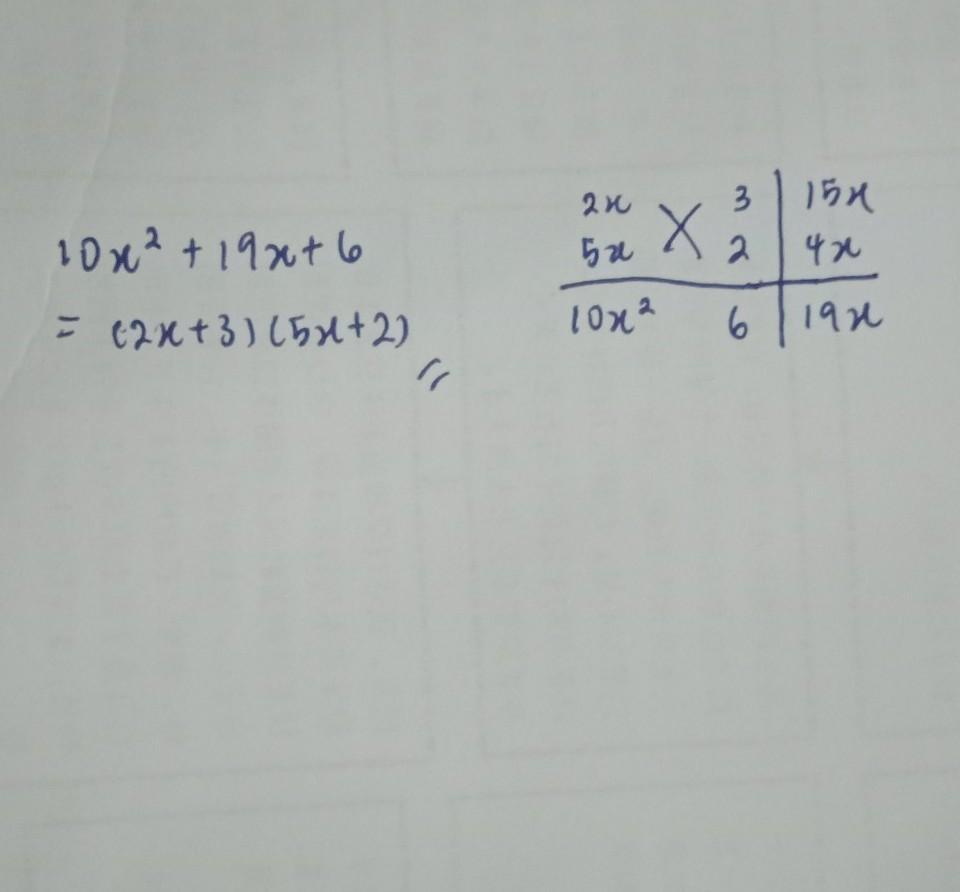 10x² + 19x + 6
= (2x+3)(5x+2)
2x 3 | 15x
5x 2 | 4x
10x² 6 | 19x